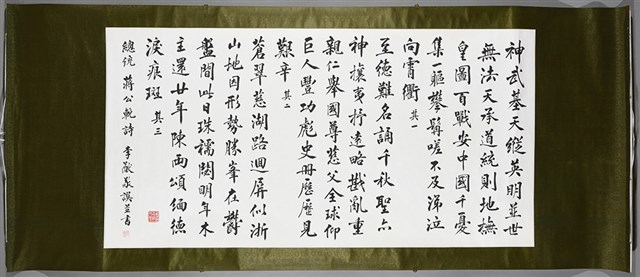 神武基天縱英明並世
無法天承道統則地撫
皇圖百戰安中國千憂
集一軀攀髯嗟不及涕泣
向霄衢 其一
至德難名誦千秋聖亦
神攘夷抒遠略戡亂重
親仁舉國尊慈父全球仰
巨人豐功彪史冊歷歷見
艱辛 其二
蒼翠慈湖路迴屏似浙
山地因形勢勝峯在鬱
盤間此日珠襦閟明年木
主還廿年陳兩頌緬德
淚痕斑 其三
總統 蔣公輓詩 李猷敬譔並書